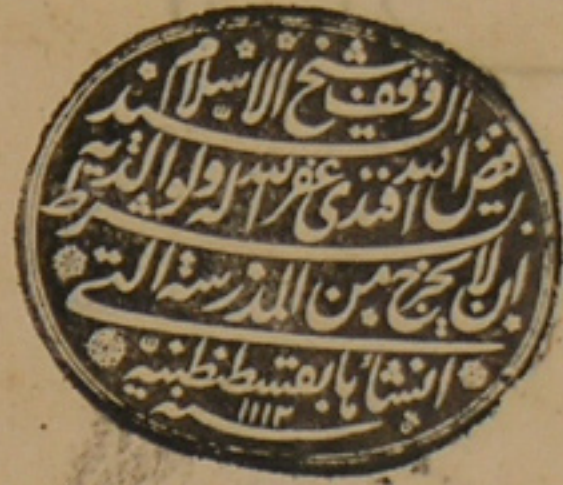 وقف شيخ الاسلام السيد
فيض الله افندى غفر الله له ولوالديه
بشرط ان لا يخرج من المدرسة التي
انشأها بقسطنطنية
سنه ١١١٣